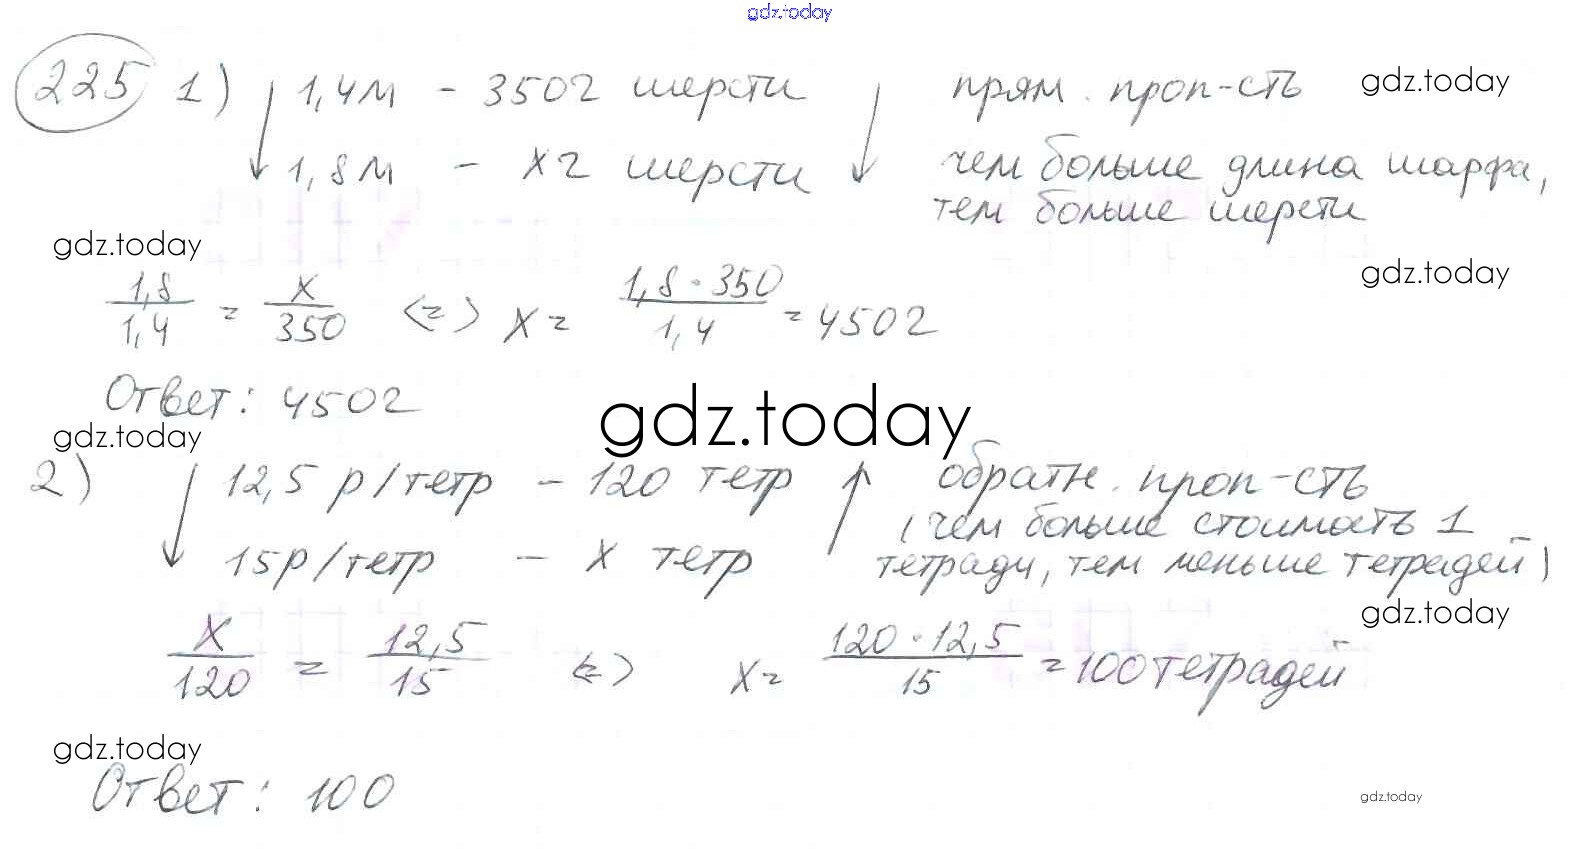 gdz.today
225 1) 1,4м - 350г шерсти прям. проп-сть gdz.today
1,8м - xг шерсти чем больше длина шарфа,
тем больше шерсти
gdz.today gdz.today
1,8/1,4 = x/350 <=> x = 1,8·350/1,4 = 450г
Ответ: 450г
gdz.today
gdz.today
2) 12,5 р/тетр - 120 тетр обратн. проп-сть
(чем больше стоимость 1
15р/тетр - x тетр тетради, тем меньше тетрадей)
gdz.today
x/120 = 12,5/15 <=> x = 120·12,5/15 = 100 тетрадей
gdz.today
Ответ: 100
gdz.today